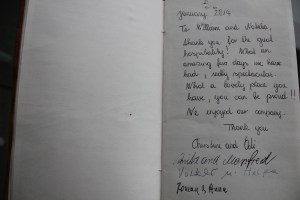 January, 2014
To William and Natalia,
thank you for the great
hospitality! What an
amazing few days we have
had, really spectacular.
What a lovely place you
have, you can be proud!!
We enjoyed our company.
Thank you
Christine and
and Manfred